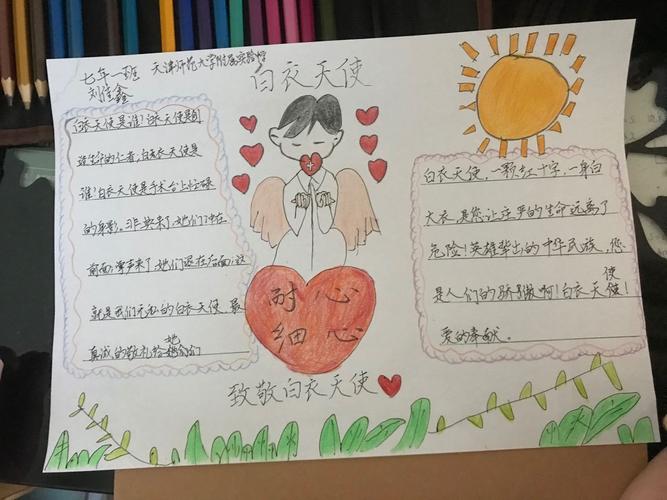 七年一班 天津师范大学附属实验中学
刘佳鑫
白衣天使
白衣天使是谁?白衣天使是创
造生命的仁者,白衣天使是
谁!白衣天使是手术台上忙碌
的身影。非典来了她们冲在
前面,掌声来了她们还在后面,这
就是我们无私的白衣天使 最
真诚的敬礼给她们
白衣天使,一颗红十字,一身白
大衣,是您让庄严的生命远离了
危险!英雄辈出的中华民族,您
是人们的骄傲啊!白衣天使!
爱的奉献。
耐心
细心
致敬白衣天使